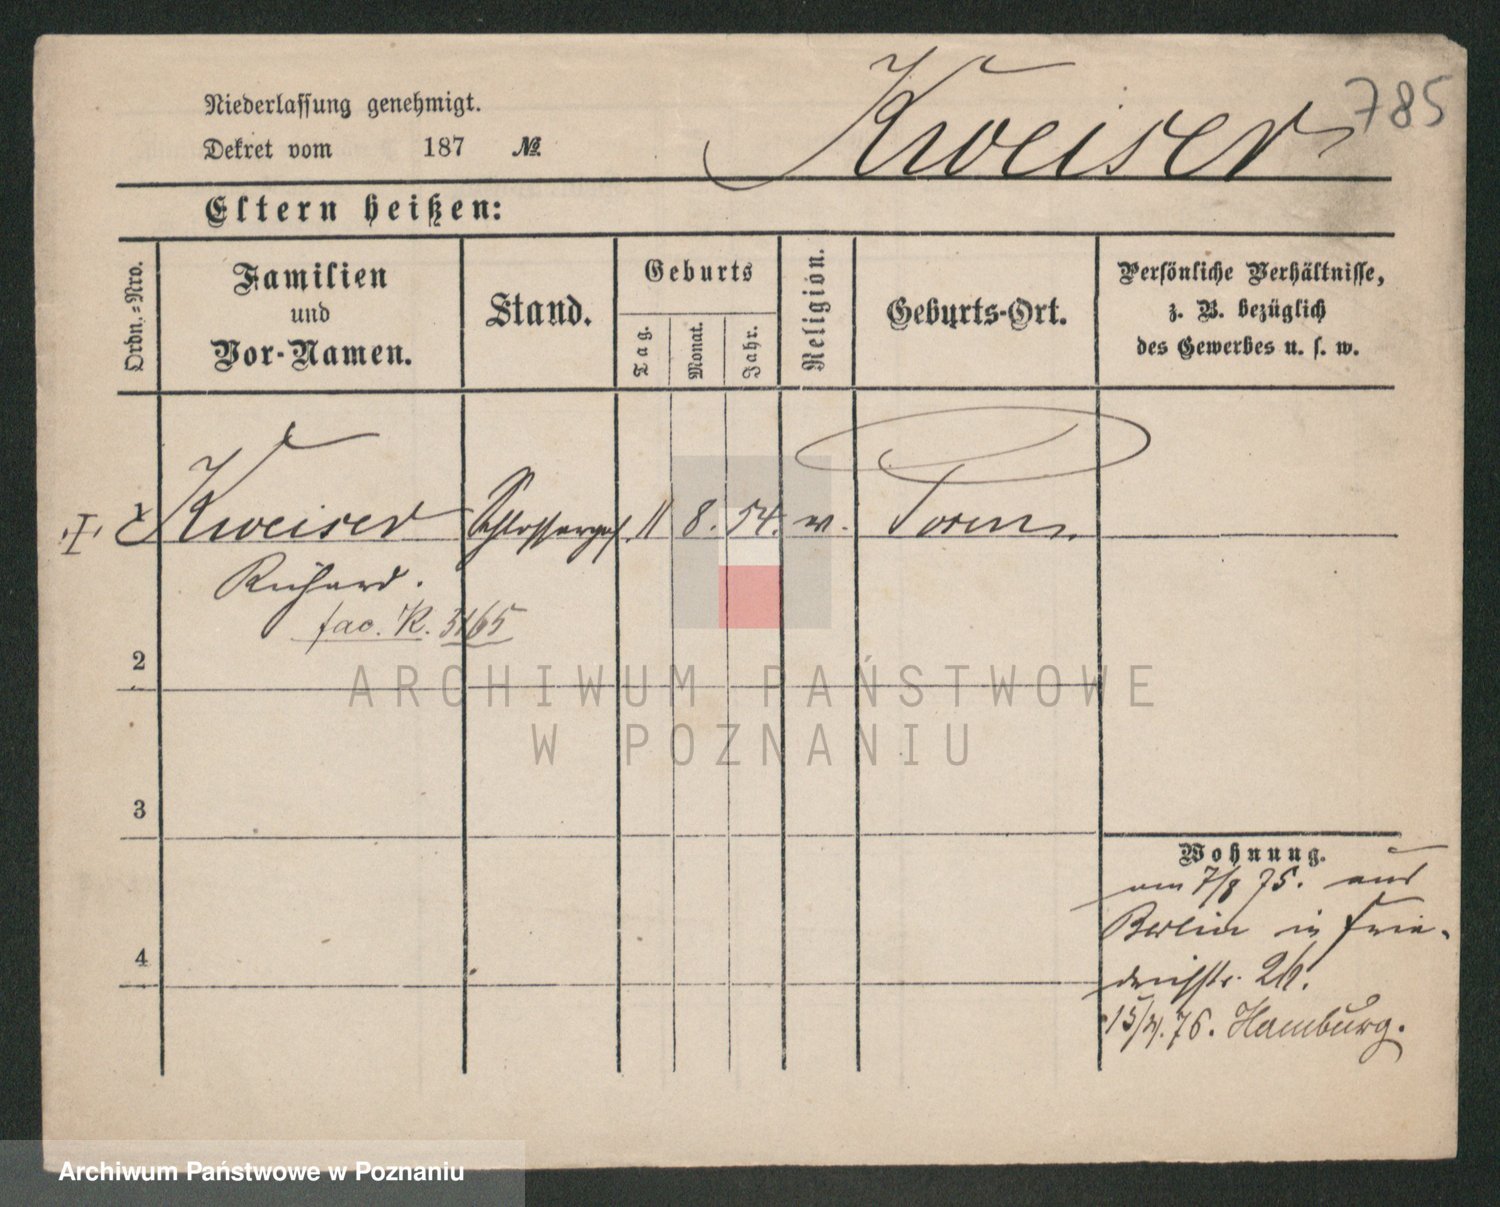 785
Kweiser
Niederlassung genehmigt.
Dekret vom 187 №
Eltern heißen:
Ordn.=Nro.
Familien
und
Vor-Namen.
Stand.
Geburts
Tag.
Monat.
Jahr.
Religion.
Geburts-Ort.
Persönliche Verhältnisse,
z. B. bezüglich
des Gewerbes u. s. w.
1 Kweiser Schlosserges. 11 8. 54. Posen
Richard.
fac. K. 3165
2
3
4
Wohnung.
am 7/8 75. aus
Berlin in Frie-
drichstr.
15/4. 76. Hamburg.
ARCHIWUM PAŃSTWOWE
W POZNANIU
Archiwum Państwowe w Poznaniu